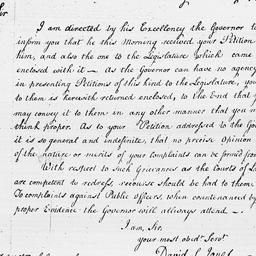 Sir
I am directed by his Excellency the Governor to
inform you that he this Morning received your Petition
him, and also the one to the Legislature which came
enclosed with it — As the Governor can have no agency
in presenting Petitions of this kind to the Legislature, you
to them is herewith returned enclosed, to the End that y
may convey it to them in any other manner that you m
think proper. As to your Petition addressed to the Go
it is so general and indefinite, that no precise Opinion
of the nature or merits of your Complaints can be formed from
With respect to such Grievances as the Courts of L
are competent to redress, recourse should be had to them
To complaints against Public officers, when countenanced by
proper Evidence the Governor will allways attend —
I am, Sir.
your most obedt. Servt.
David S. Jones